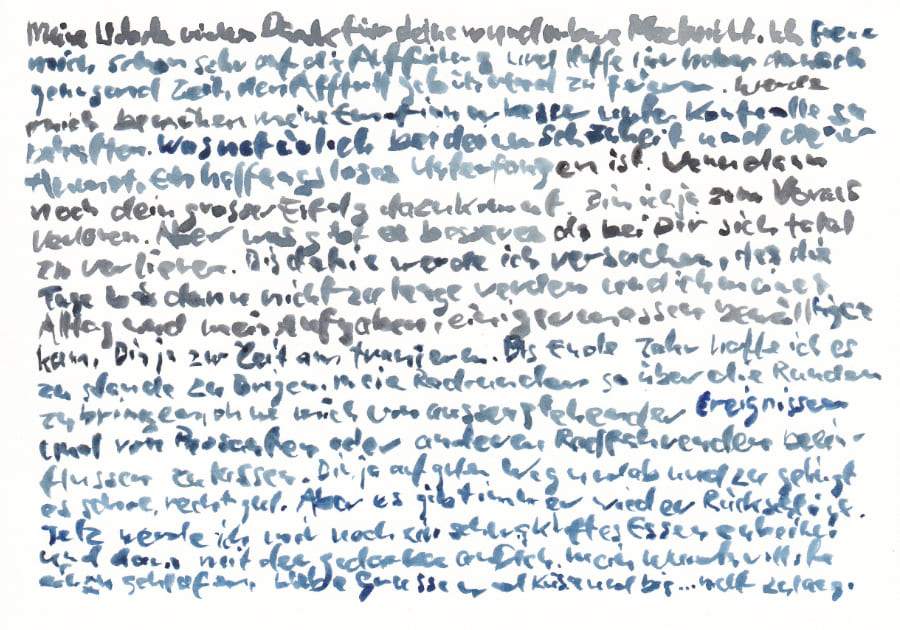 Meine Liebste vielen Dank für deine wunderbare Nachricht. Ich freue
mich schon sehr auf die und hoffe wir haben danach
genügend Zeit, den gebührend zu feiern. werde
mich bemühen meine Emotionen besser unter Kontrolle zu
behalten. Was natürlich bei deiner Schönheit und deiner
Anmut, Ein hoffnungsloses Unterfangen ist. Wenn dann
noch dein grosser Erfolg dazukommt. Bin ich ja zum Voraus
verloren. Aber was gibt es besseres als bei Dir sich total
zu verlieren. Bis dahin werde ich versuchen, das die
Tage bis dann nicht zu lange werden und ich meinen
Alltag und meine Aufgaben, einigermassen bewältigen
kann. Bin ja zur Zeit am trainieren. Bis Ende Jahr hoffe ich es
zu stande zu bringen, meine Radrunden so über die Runden
zu bringen, ohne mich von aussen stehender Ereignissen
und von oder anderen Radfahrenden beein-
flussen zu lassen. Bin ja auf guten Weg und ab und zu gelingt
es schon, recht gut. Aber es gibt immer wieder Rückschläge.
Jetz werde ich mir noch ein schmackhaftes Essen zubereiten
und dann mit den gedanken an Dich, mein wundervollste
einzu schlafen. Liebe Grüsse und Küsse und bis ... nicht zulang.